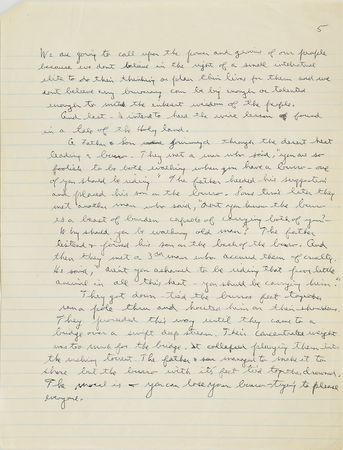 5
We are going to call upon the power and genius of our people
because we don't believe in the right of a small intellectual
elite to do their thinking or plan their lives for them and we
don't believe any bureaucracy can be big enough or talented
enough to match the inherent wisdom of the people.
And last - I intend to heed the wise lesson I found
in a tale of the Holy land.
A Father & Son journeyed through the desert heat
leading a burro. They met a man who said, "you are so
foolish to be both walking when you have a burro - one
of you should be riding." The father heeded his suggestion
and placed his son on the burro. Some time later they
met another man who said, "don't you know the burro
is a beast of burden capable of carrying both of you? -
Why should you be walking old man?" The father
listened & joined his son on the back of the burro. And
then they met a 3rd man who accused them of cruelty.
He said, "aren't you ashamed to be riding that poor little
animal in all this heat - you should be carrying him."
They got down tied the burros feet together
ran a pole thru and hoisted him on their shoulders.
They proceeded this way until they came to a
bridge over a swift deep stream. Their concentrated weight
was too much for the bridge. It collapsed plunging them into
the rushing torrent. The father & son managed to make it to
shore but the burro with it's feet tied together drowned.
The moral is - you can lose your burro trying to please
everyone.